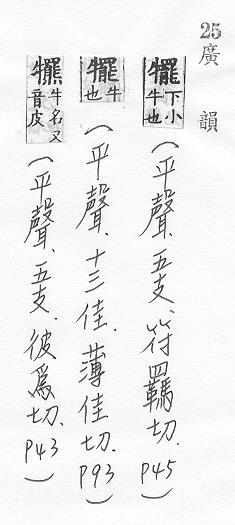 25廣韻
犤下小牛也（平聲、五支、符羈切、P45）
犤牛也（平聲、十三佳、薄佳切、P93）
犤牛名又音皮（平聲、五支、彼為切、P43）